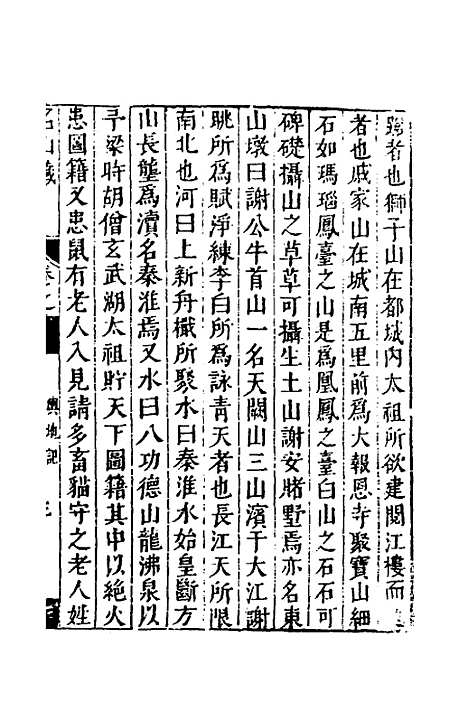 䠂者也獅子山在都城内太祖所欲建閱江樓而
者也戚家山在城南五里前爲大報恩寺聚寶山細
石如瑪瑙鳳臺之山是爲凰鳳之臺白山之石石可
碑礎攝山之草草可攝生土山謝安賭墅焉亦名東
山墩曰謝公牛首山一名天闕山三山濱于大江謝
眺所爲賦淨練李白所爲詠青天者也長江天所限
南北也河曰上新舟檝所聚水曰秦淮水始皇斷方
山長壟爲瀆名秦淮焉又水曰八功德山龍沸泉以
予梁時胡僧玄武湖太祖貯天下圖籍其中以絶火
患圖籍又患鼠有老人入見請多畜貓守之老人姓
名山藏
輿地記